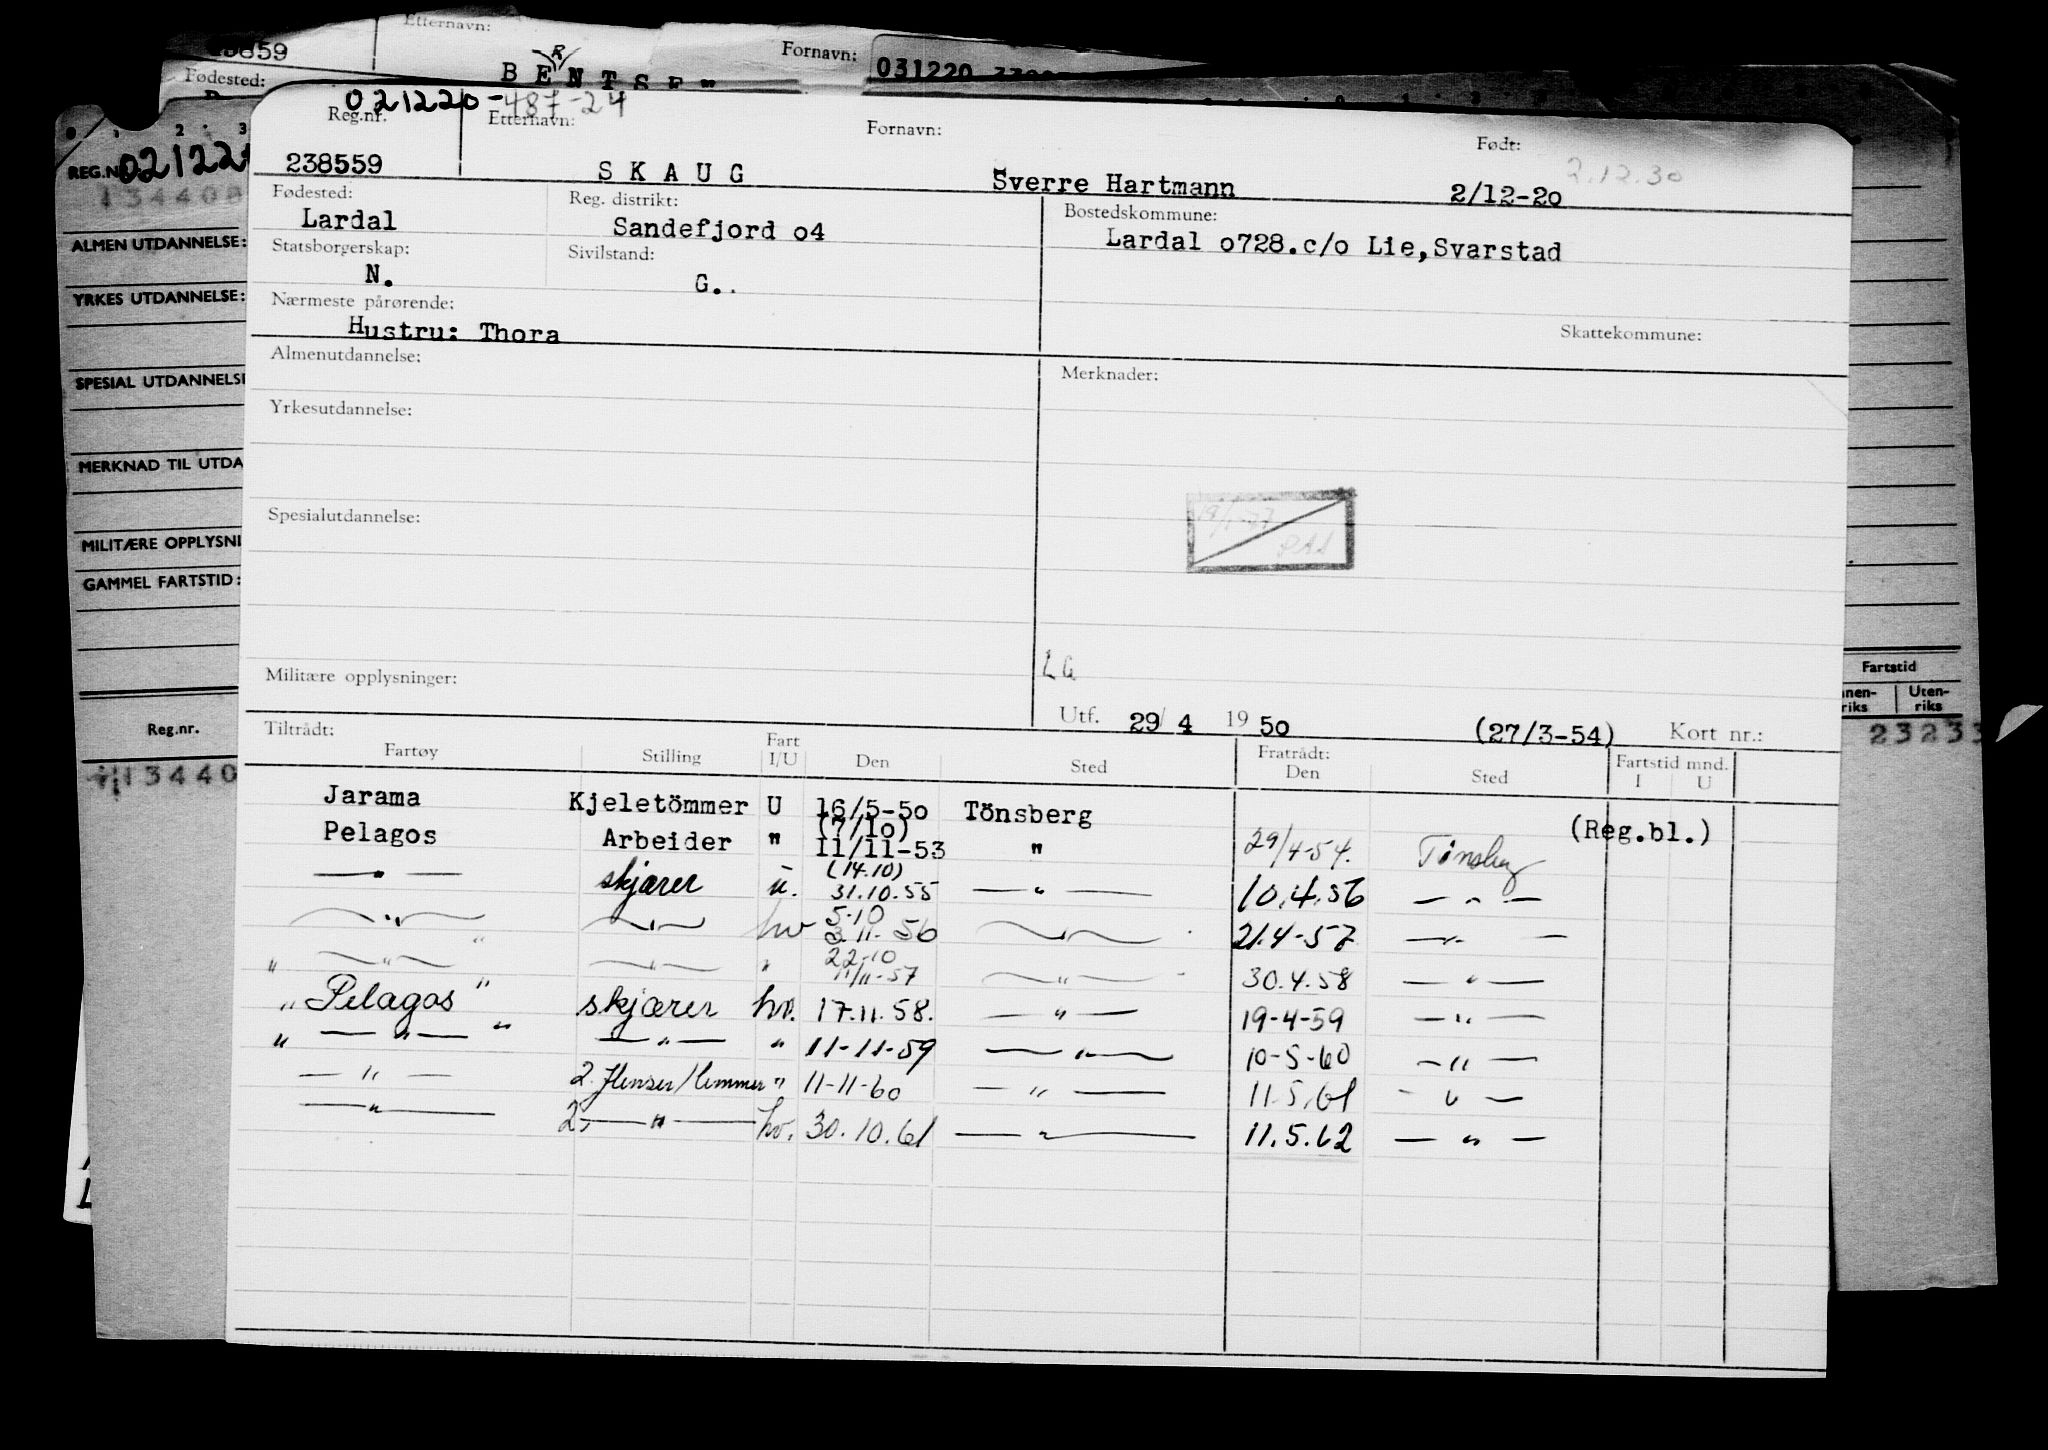 Etternavn:
38659
Fornavn:
031220
BENTSE
R
Fødested:
021220-487-24
Reg.nr. Etternavn: Fornavn: Født:
2.12.30
238559 SKAUG Sverre Hartmann 2/12-20
Fødested: Reg. distrikt: Bostedskommune:
Lardal Sandefjord o4 Lardal o728.c/o Lie,Svarstad
Statsborgerskap: Sivilstand:
N. G..
Nærmeste pårørende: Skattekommune:
Hustru: Thora
Almenutdannelse: Merknader:
Yrkesutdannelse:
Spesialutdannelse:
Militære opplysninger:
LG
Utf. 29/ 4 19 50 (27/3-54) Kort nr.:
Tiltrådt: Fratrådt: Fartstid mnd.
Fartøy Stilling Fart I/U Den Sted Den Sted I U
Jarama Kjeletömmer U 16/5-50 Tönsberg (Reg.bl.)
(7/10)
Pelagos Arbeider " 11/11-53 " 29/4-54. Tönsberg
(14.10)
— " — skjærer u. 31.10.55 — " — 10.4.56 — " —
5-10
— " — — " — hv 3.11-56 — " — 21.4-57 — " —
22-10
" — " — " — " — " 11/11-57 — " — 30.4.58 — " —
" Pelagos " skjærer hv. 17.11.58. — " — 19-4-59 — " —
" — " — " — " — " 11-11-59 — " — 10-5-60 — " —
— " — 2. flenser/lemmer " 11-11-60 — " — 11.5.61 — " —
— " — 2. — " — hv. 30.10.61 — " — 11.5.62 — " —
REG.N 021220
134408
ALMEN UTDANNELSE:
YRKES UTDANNELSE:
SPESIAL UTDANNELSE
MERKNAD TIL UTDA
MILITÆRE OPPLYSNI
GAMMEL FARTSTID:
Reg.nr.
13440
Fartstid
nnen-riks Uten-riks
23233